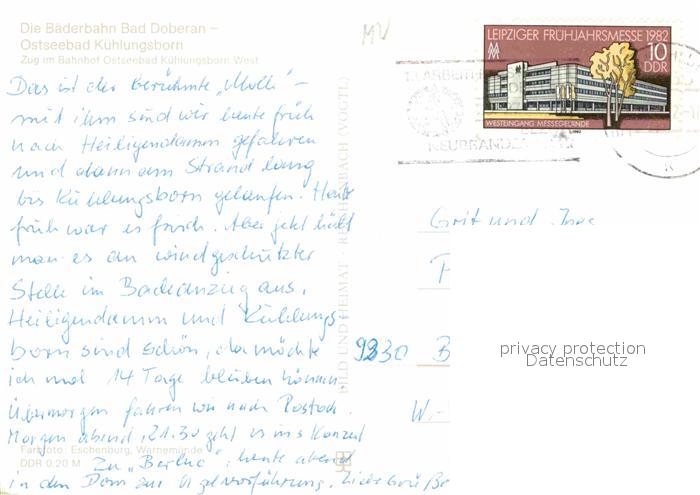 Die Bäderbahn Bad Doberan –
Ostseebad Kühlungsborn
Zug im Bahnhof Ostseebad Kühlungsborn West
MV
LEIPZIGER FRÜHJAHRSMESSE 1982
10
DDR
WESTEINGANG MESSEGELÄNDE
Das ist der berühmte „Molli" –
mit ihm sind wir heute früh
nach Heiligendamm gefahren
und dann am Strand lang
bis Kühlungsborn gelaufen. Heute
früh war es frisch. Aber jetzt hält
man es an windgeschützter
Stelle im Badeanzug aus.
Heiligendamm und Kühlungs
born sind schön, da möchte
ich mal 14 Tage bleiben können.
Übermorgen fahren wir nach Rostock.
Morgen abend, 21.30 geht es ins Konzert
Zu „Berluc", heute abend
in den Dom zur Orgelvorführung. Liebe Grüße
Farbfoto: Eschenburg, Warnemünde
DDR 0,20 M
BILD UND HEIMAT · REICHENBACH (VOGTL)
Grit und
9330 B
W.-
privacy protection
Datenschutz